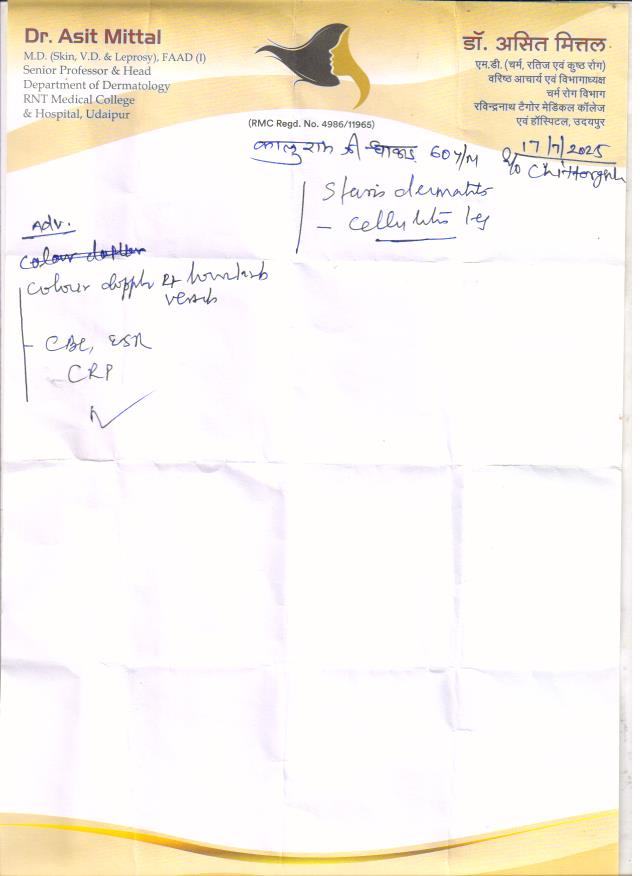 Dr. Asit Mittal
M.D. (Skin, V.D. & Leprosy), FAAD (I)
Senior Professor & Head
Department of Dermatology
RNT Medical College
& Hospital, Udaipur
डॉ. असित मित्तल
एम.डी. (चर्म, रतिज एवं कुष्ठ रोग)
वरिष्ठ आचार्य एवं विभागाध्यक्ष
चर्म रोग विभाग
रविन्द्रनाथ टैगोर मेडिकल कॉलेज
एवं हॉस्पिटल, उदयपुर
(RMC Regd. No. 4986/11965)
17/7/2025
कालुराम जी धाकड़ 60 Y/M R/o Chittorgarh
Stasis dermatitis
- Cellulitis leg
Adv.
Colour doppler
Colour doppler Rt
- CBC, ESR
CRP